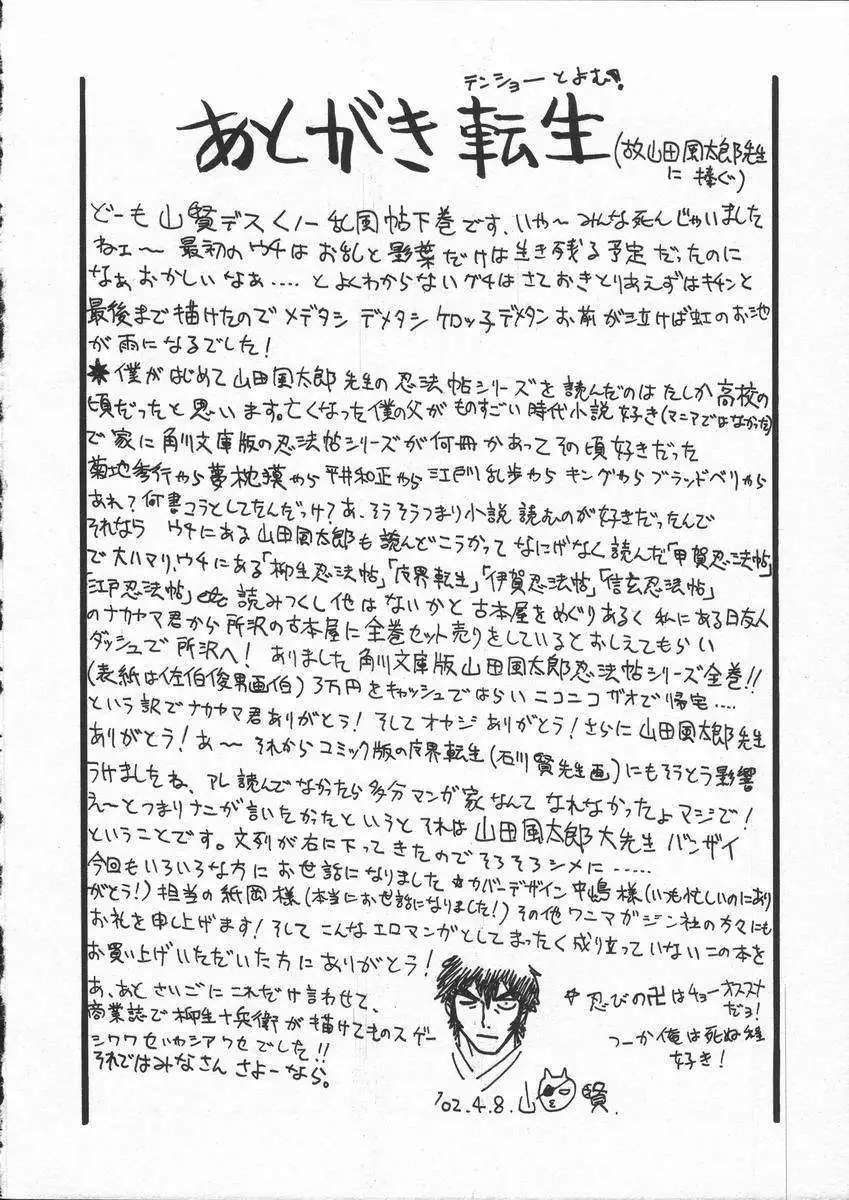 テンショーとよむ!
あとがき転生
(故山田風太郎先生
に捧ぐ)
どーも山賢デスくノ一乱風帖下巻です、いや〜みんな死んじゃいました
ねェ〜 最初のウチはお乱と影葉だけは生き残る予定だったのに
なぁ、おかしいなぁ....とよくわからないグチはさておきとりあえずはキチンと
最後まで描けたのでメデタシ デメタシ ケロッ子デメタン お前が泣けば虹のお池
が雨になるでした!
＊僕がはじめて山田風太郎先生の忍法帖シリーズを読んだのはたしか高校の
頃だったと思います。亡くなった僕の父がものすごい時代小説好き(マニアではなかった)
で家に角川文庫版の忍法帖シリーズが何冊かあってその頃好きだった
菊地秀行やら夢枕獏やら平井和正やら江戸川乱歩やら キングやら ブランドベリやら
あれ?何書コラとしてたんだっけ?あ、そうそうつまり小説 読むのが好きだったんで
それなら ウチにある山田風太郎も読んどこうかってなにげなく読んだ「甲賀忍法帖」
で大ハマリ、ウチにある「柳生忍法帖」「魔界転生」「伊賀忍法帖」「信玄忍法帖」
「江戸忍法帖」etc 読みつくし他はないかと古本屋をめぐりあるく私にある日友人
のナカヤマ君から所沢の古本屋に全巻セット売りをしているとおしえてもらい
ダッシュで所沢へ! ありました角川文庫版山田風太郎忍法帖シリーズ全巻!!
(表紙は佐伯俊男画伯)3万円をキャッシュではらいニコニコガオで帰宅....
という訳でナカヤマ君ありがとう! そしてオヤジありがとう!さらに山田風太郎先生
ありがとう!あ〜それからコミック版の魔界転生(石川賢先生画)にもそうとう影響
うけましたね、アレ読んでなかったら多分マンガ家なんてなれなかったよマジで!
え〜とつまりナニが言いたかったというとそれは山田風太郎大先生バンザイ
ということです。文列が右に下ってきたのでそろそろシメに......
今回もいろいろな方にお世話になりました☆カバーデザイン中嶋様(いつも忙しいのにあり
がとう!)担当の紙岡様(本当にお世話になりました!)その他ワニマガジン社の方々にも
お礼を申し上げます!そしてこんなエロマンガとしてまったく成り立っていないこの本を
お買い上げいただいた方にありがとう!
あ、あとさいごにこれだけ言わせて、
商業誌で柳生十兵衛が描けてものスゲー
シワワセいやシアワセでした!!
それではみなさん さよーなら。
☆忍びの卍はチョーオススメ
だョ!
つーか俺は死ぬ程
好き!
'02.4.8.山賢.